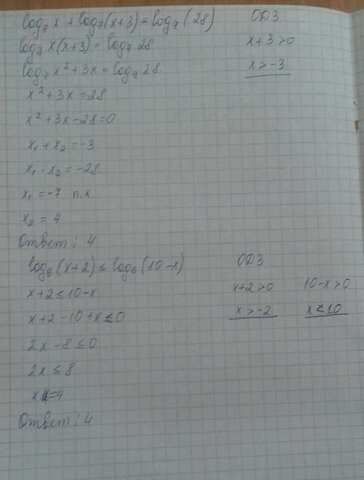 log₇ x + log₇ (x+3) = log₇ (28)
ОДЗ
log₇ x(x+3) = log₇ 28
x+3 >0
log₇ x²+3x = log₇ 28
x > -3
x²+3x = 28
x²+3x-28=0
x₁ + x₂ = -3
x₁ · x₂ = -28
x₁ = -7 п.к
x₂ = 4
Ответ: 4
log₆ (x+2) ≤ log₆ (10-x)
ОДЗ
x+2 ≤ 10-x
x+2 >0
10-x>0
x+2-10+x ≤ 0
x > -2
x < 10
2x -8 ≤ 0
2x ≤ 8
Ответ: 4